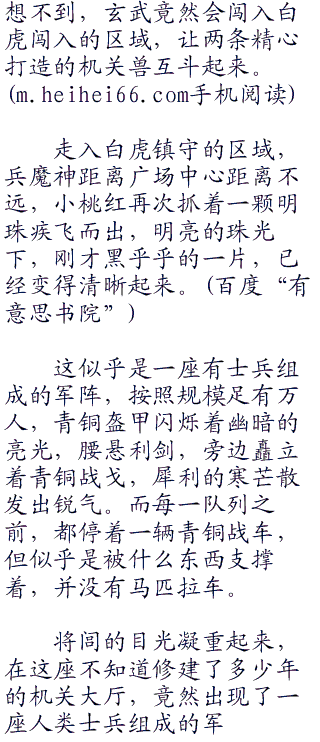 想不到，玄武竟然会闯入白
虎闯入的区域，让两条精心
打造的机关兽互斗起来。
(m.heihei66.com手机阅读)
走入白虎镇守的区域，
兵魔神距离广场中心距离不
远，小桃红再次抓着一颗明
珠疾飞而出，明亮的珠光
下，刚才黑乎乎的一片，已
经变得清晰起来。(百度“有
意思书院”)
这似乎是一座有士兵组
成的军阵，按照规模足有万
人，青铜盔甲闪烁着幽暗的
亮光，腰悬利剑，旁边矗立
着青铜战戈，犀利的寒芒散
发出锐气。而每一队列之
前，都停着一辆青铜战车，
但似乎是被什么东西支撑
着，并没有马匹拉车。
将闾的目光凝重起来，
在这座不知道修建了多少年
的机关大厅，竟然出现了一
座人类士兵组成的军